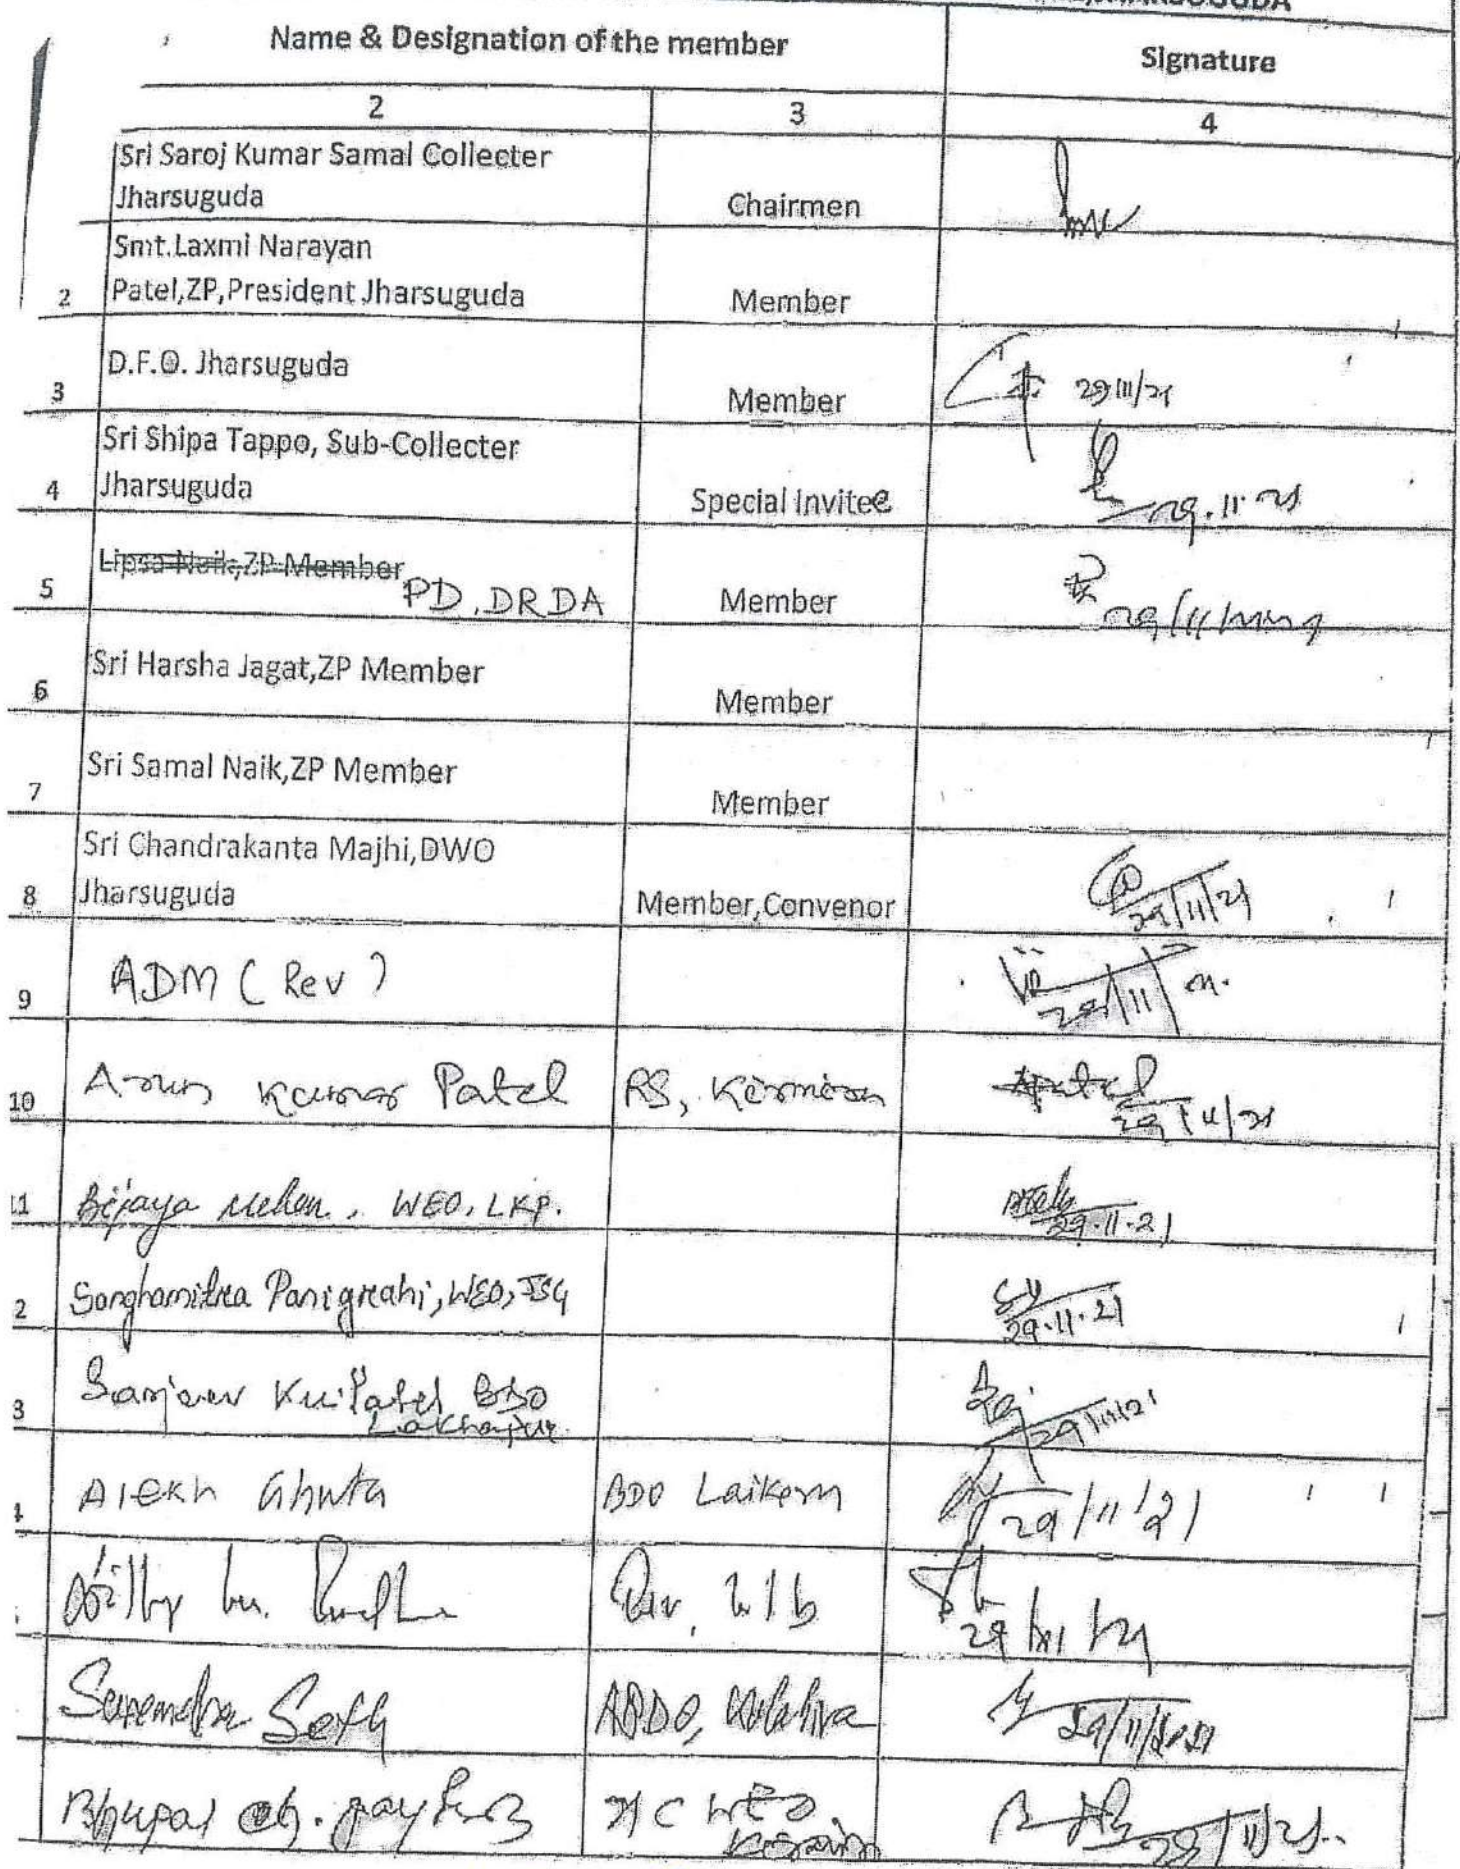 Name & Designation of the member Signature
2 3 4
Sri Saroj Kumar Samal Collecter
Jharsuguda Chairmen
Smt.Laxmi Narayan
2 Patel,ZP,President Jharsuguda Member
D.F.O. Jharsuguda
3 Member 29/11/21
Sri Shipa Tappo, Sub-Collecter
4 Jharsuguda Special Invitee 29.11.21
Lipsa Naik,ZP Member
5 PD, DRDA Member 29/11/2021
Sri Harsha Jagat,ZP Member
6 Member
Sri Samal Naik,ZP Member
7 Member
Sri Chandrakanta Majhi,DWO
8 Jharsuguda Member,Convenor 29/11/21
9 ADM (Rev) 29/11
10 Arun Kumar Patel RS, Apatel 29/11/21
11 Bijaya WEO, LKP. 29.11.21
2 Sanghamitra Panigrahi, WEO, JSG 29.11.21
3 Sanjeev Ku Patel BDO 29/11/21
Lakhanpur
Alekh Ghuta BDO Laikera 29/11/21
29/11/21
Surendra Seth ABDO, 29/11/2021
Bhupal ch. WEO 29/11/21